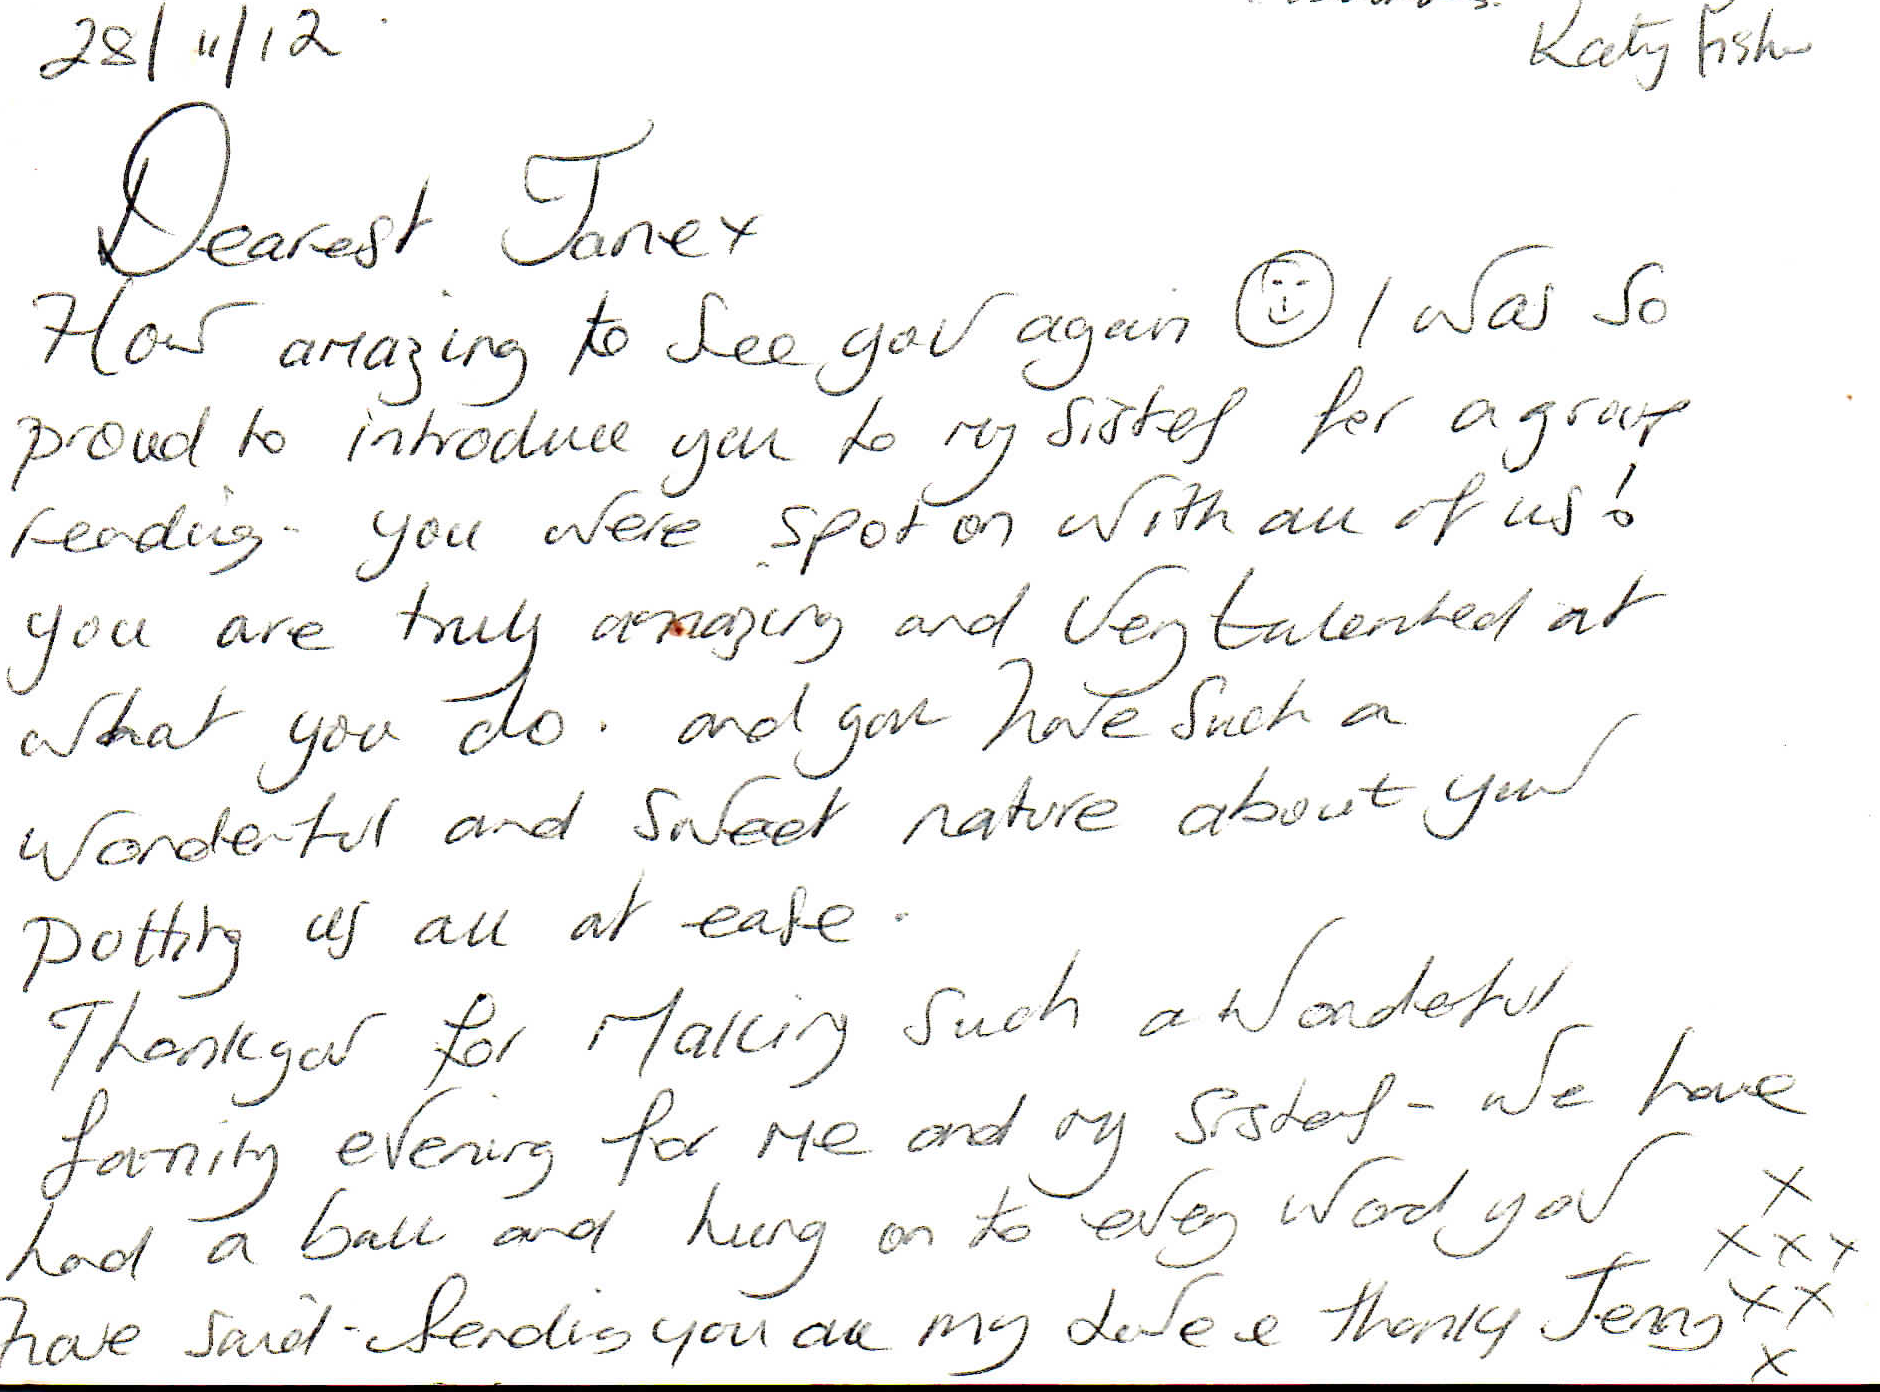 28/11/12
Katy Fisher
Dearest Jane x
How amazing to see you again I was so
proud to introduce you to my sisters for a group
reading - you were spot on with all of us!
you are truly amazing and very talented at
what you do. and you have such a
wonderful and sweet nature about you
putting us all at ease.
Thankyou for Making such a wonderful
family evening for me and my sisters - we have
had a ball and hung on to every word you
have said - Sending you all my Love & thanks Jenny
x
x x x
x x
x